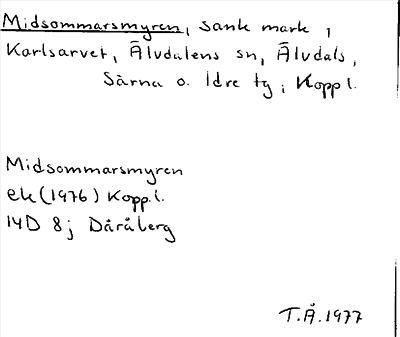 Midsommarsmyren, sank mark i
Karlsarvet, Älvdalens sn, Älvdals,
Särna o. Idre tg, Kopp l.
Midsommarsmyren
ek (1976) Kopp. l.
14D 8j Dåråberg
T.Å. 1977